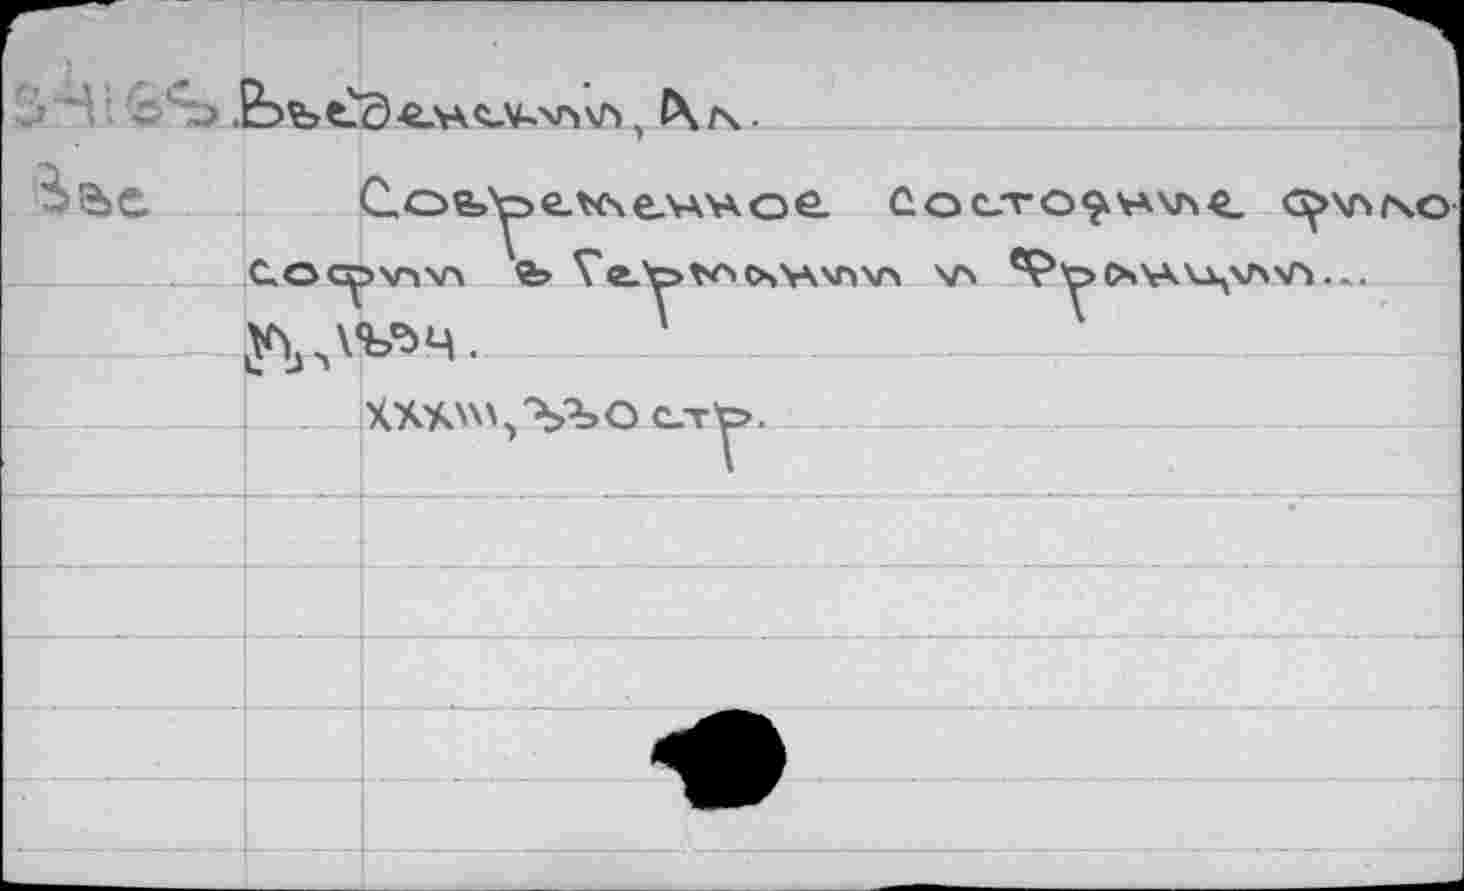 Введенский, Ал.
Современное состояние фило
софии в Германии и Франции...
М., 1894.
XXXIII, 330 стр.